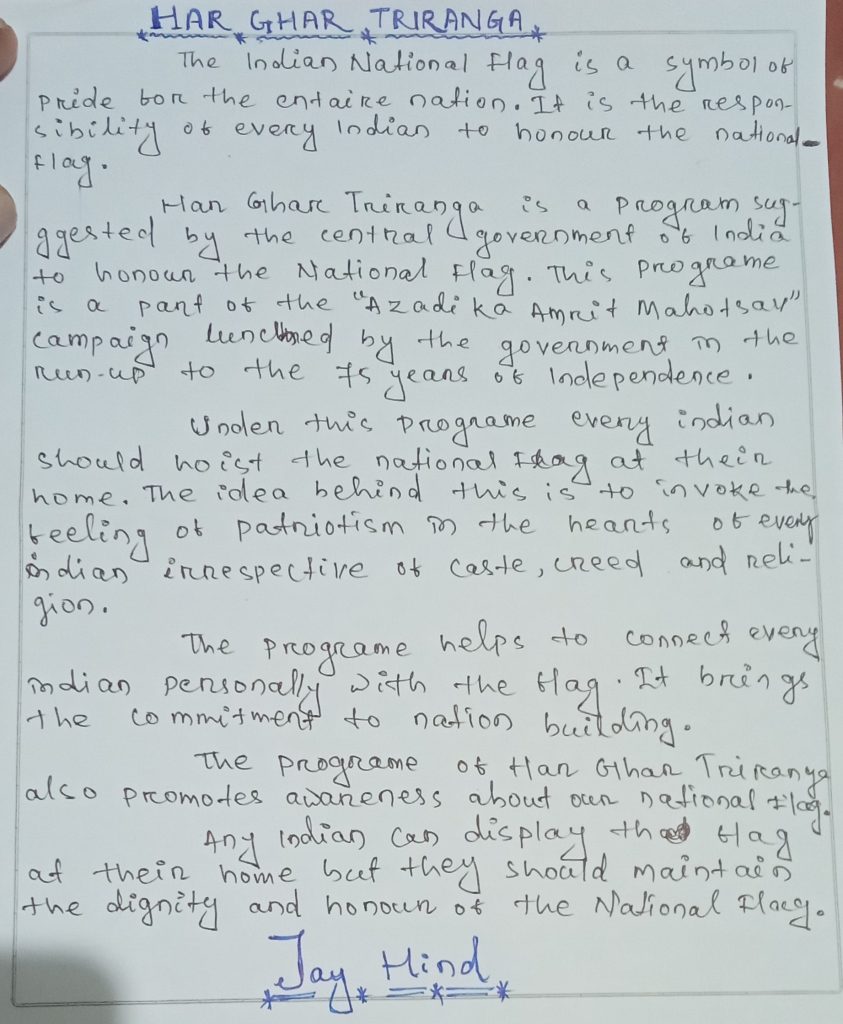 HAR GHAR TRIRANGA
The Indian National Flag is a symbol of
pride for the entaire nation. It is the respon-
sibility of every Indian to honour the national
flag.
Har Ghar Triranga is a program sug-
ggested by the central government of India
to honour the National Flag. This programe
is a part of the "Azadi ka Amrit Mahotsav"
campaign by the government in the
run-up to the 75 years of Independence.
Under this programe every indian
should hoist the national flag at their
home. The idea behind this is to invoke the
feeling of patriotism in the hearts of every
indian irrespective of caste, creed and reli-
gion.
The programe helps to connect every
indian personally with the flag. It brings
the commitment to nation building.
The programe of Har Ghar Triranga
also promotes awareness about our national flag.
Any Indian can display the flag
at their home but they should maintain
the dignity and honour of the National Flag.
Jay Hind